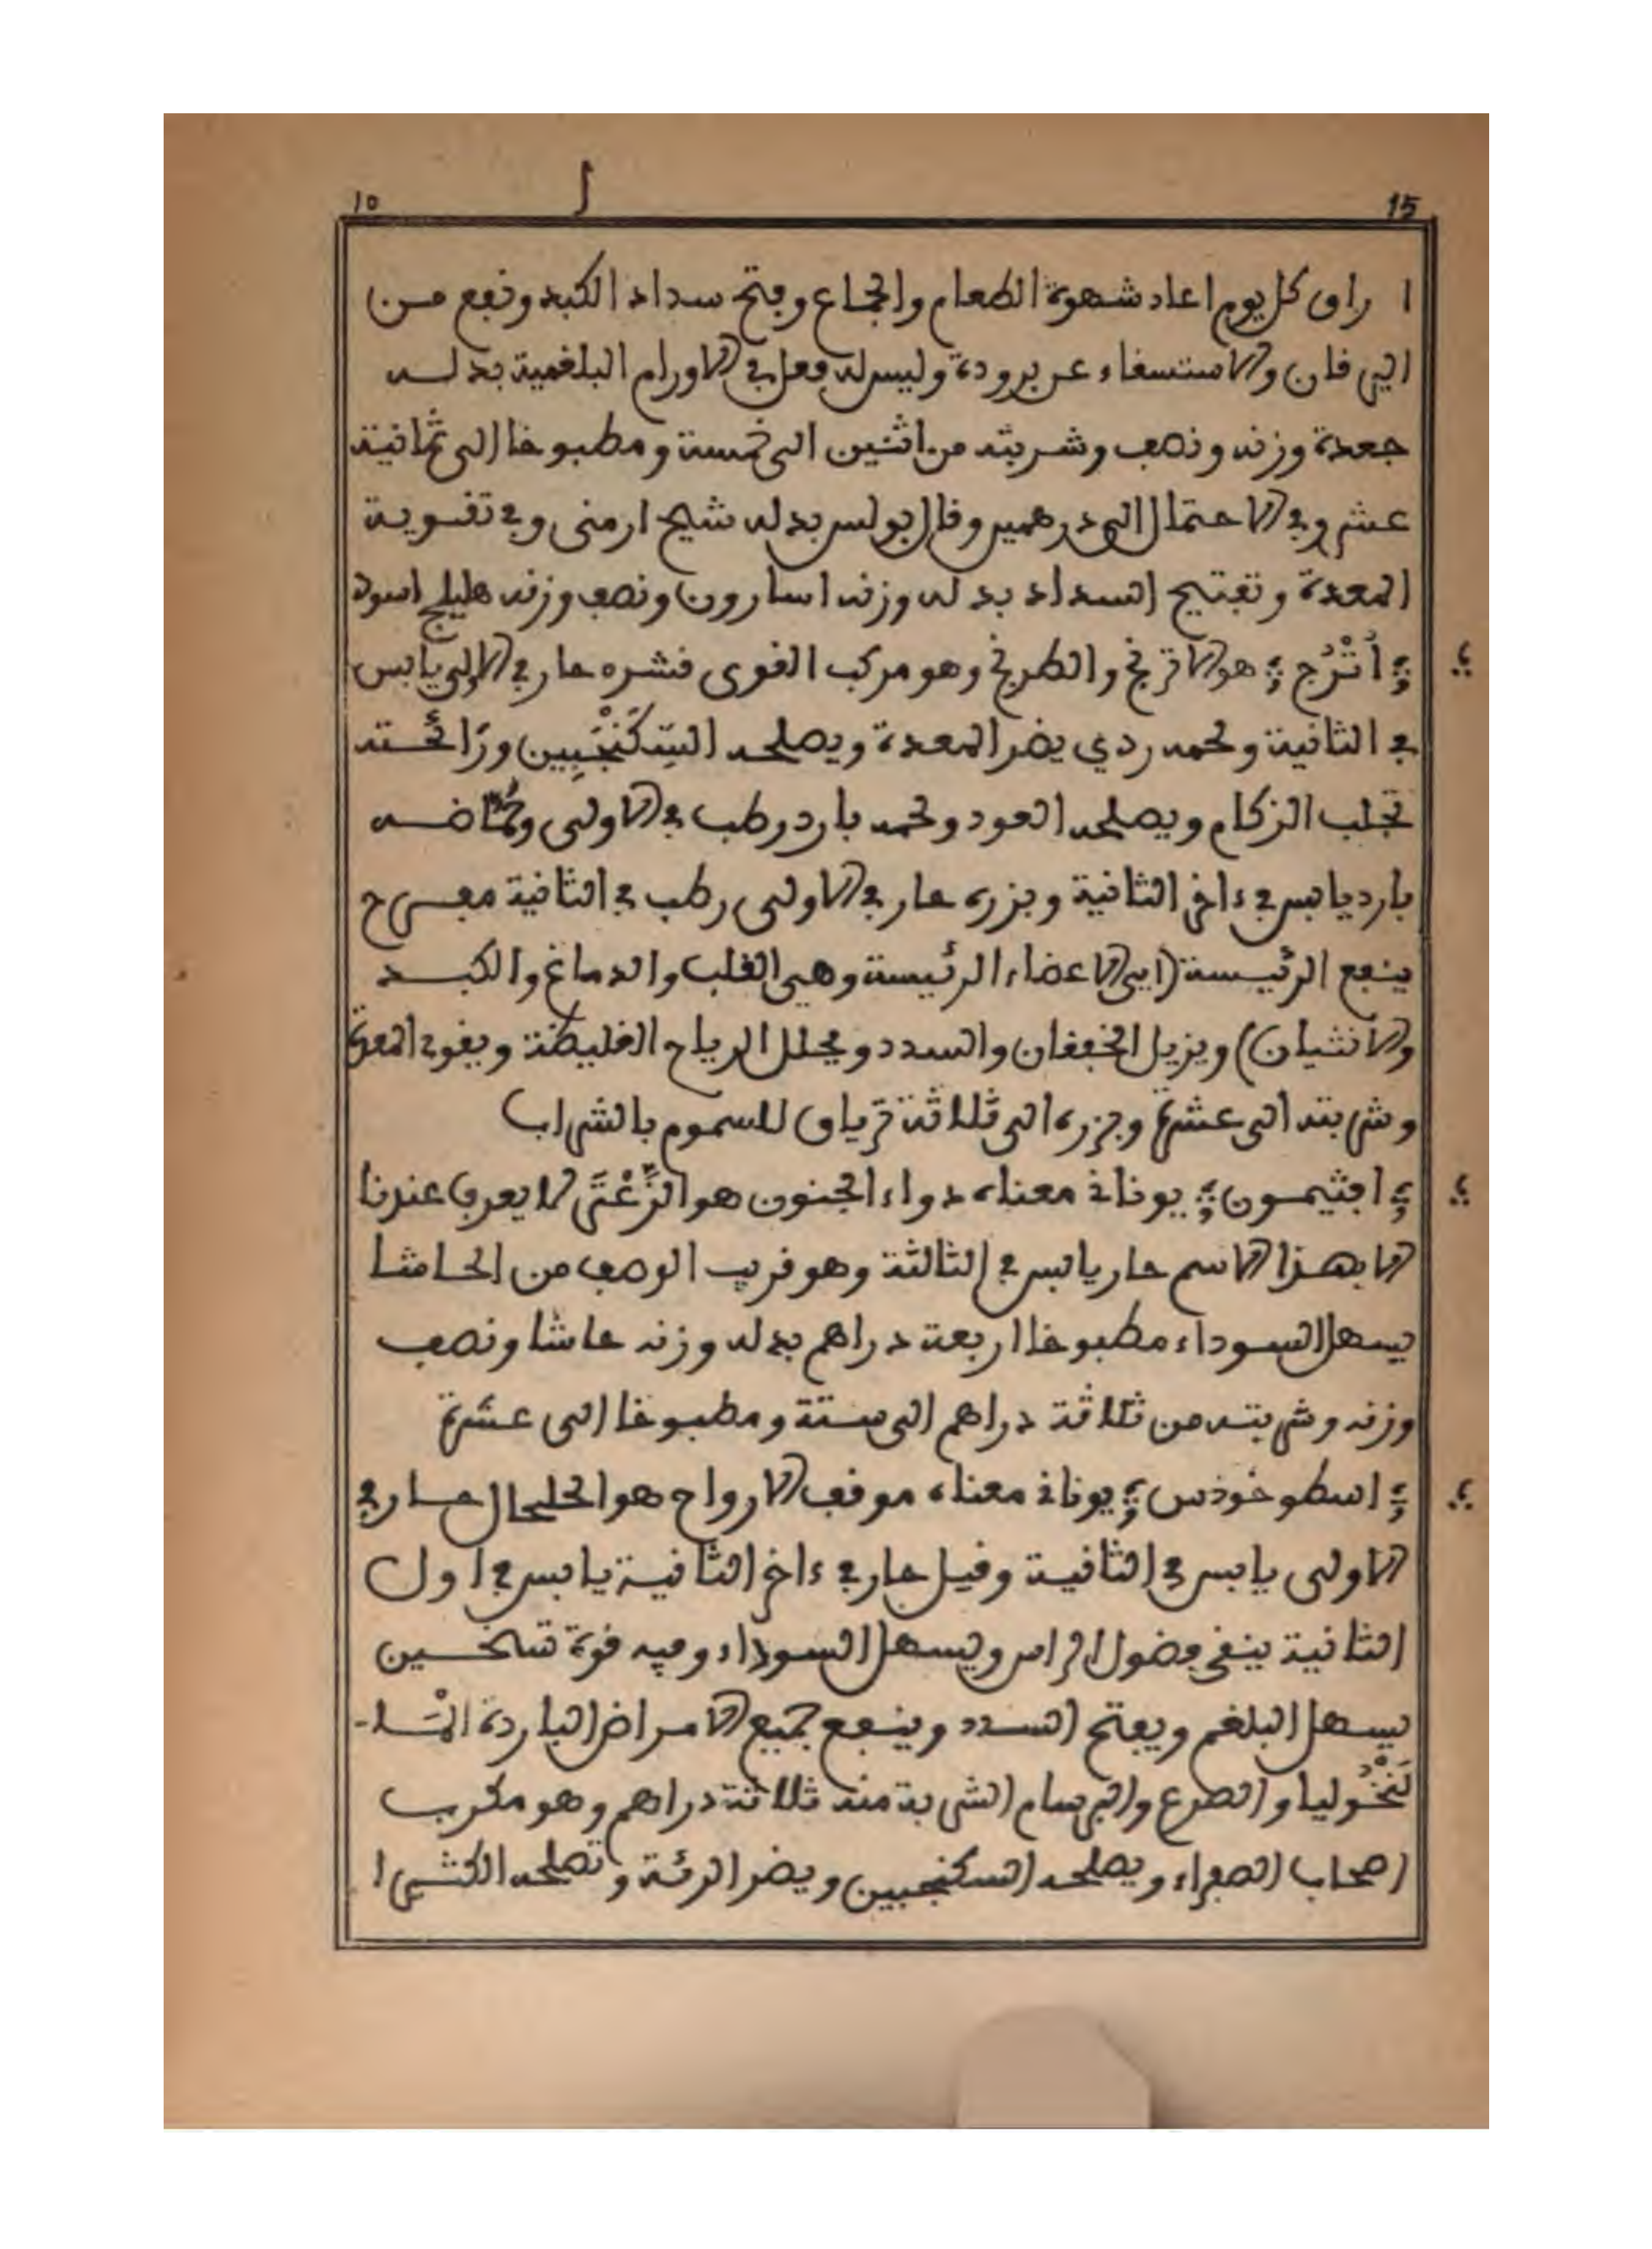 10 15
ا راق كل يوم اعاد شهوة الطعام والجماع وفتح سداد الكبد ونفع من
اليرقان والاستسقاء عن برودة وليس له فعل في الاورام البلغمية بدله
جعدة وزنه ونصف وشربته من اثنين الى خمسة ومطبوخا الى ثمانية
عشر وفي الاحتمال الى درهمين وقال بولس بدله شيح ارمني وفي تقوية
المعدة وتفتيح السداد بدله وزنه اسارون ونصف وزنه هليلج اسود
أُتْرُج هو الاترنج والطرنج وهو مركب القوى قشره حار في الاولى يابس
في الثانية ولحمه ردي يضر المعدة ويصلحه السِّكَنْجَبِين ورائحته
تجلب الزكام ويصلحه العود ولحمه بارد رطب في الاولى وحُمّاضه
بارد يابس في ءاخر الثانية وبزره حار في الاولى رطب في الثانية مفرح
ينفع الرئيسة (ايى الاعضاء الرئيسة وهي القلب والدماغ والكبد
والانثيان) ويزيل الخفقان والسدد ويحلل الرياح الغليظة ويقوي المعدة
وشربته الى عشرة وبزره الى ثلاثة ترياق للسموم بالشراب
افثيمون يوناني معناه دواء الجنون هو الزَّعْتَى لا يعرف عندنا
الا بهذا الاسم حار يابس في الثالثة وهو قريب الوصف من الحاشا
يسهل السوداء مطبوخا اربعة دراهم بدله وزنه حاشا ونصف
وزنه وشربته من ثلاثة دراهم الى ستة ومطبوخا الى عشرة
اسطوخودس يوناني معناه موقف الارواح هو الحلحال حار في
الاولى يابس في الثانية وقيل حار في ءاخر الثانية يابس في اول
الثانية ينقي فضول الراس ويسهل السوداء وفيه قوة تسخين
يسهل البلغم ويفتح السدد وينفع جميع الامراض الباردة المَا-
لَنْخُوليا والصرع والبرسام الشربة منه ثلاثة دراهم وهو مكرب
اصحاب الصفراء ويصلحه السكنجبين ويضر الرئة وتصلحه الكثيرا